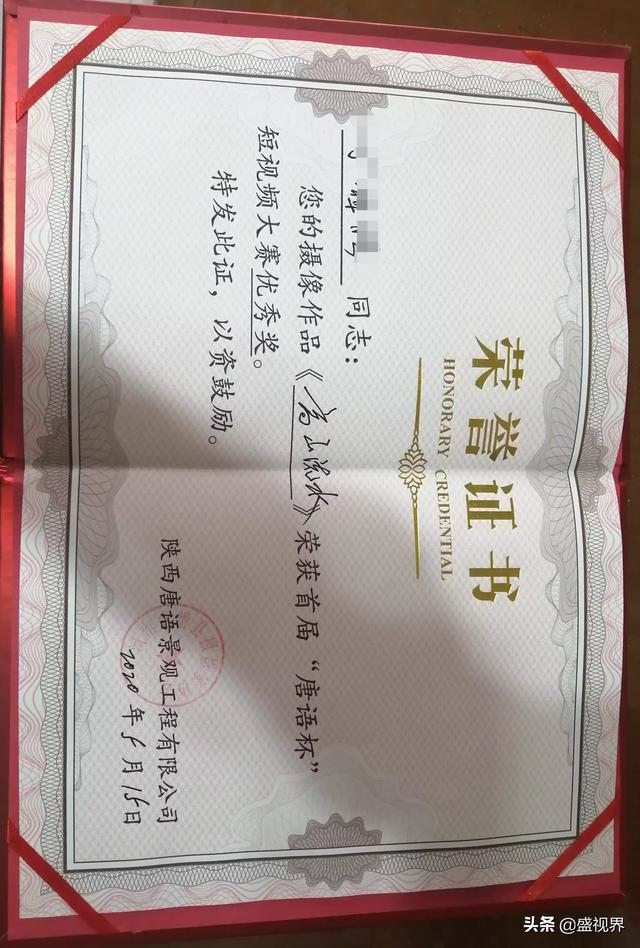 荣誉证书
HONORARY CREDENTIAL
同志：
您的摄像作品《高山流水》荣获首届“唐语杯”
短视频大赛优秀奖。
特发此证，以资鼓励。
陕西唐语景观工程有限公司
2020年5月15日
头条 @盛视界